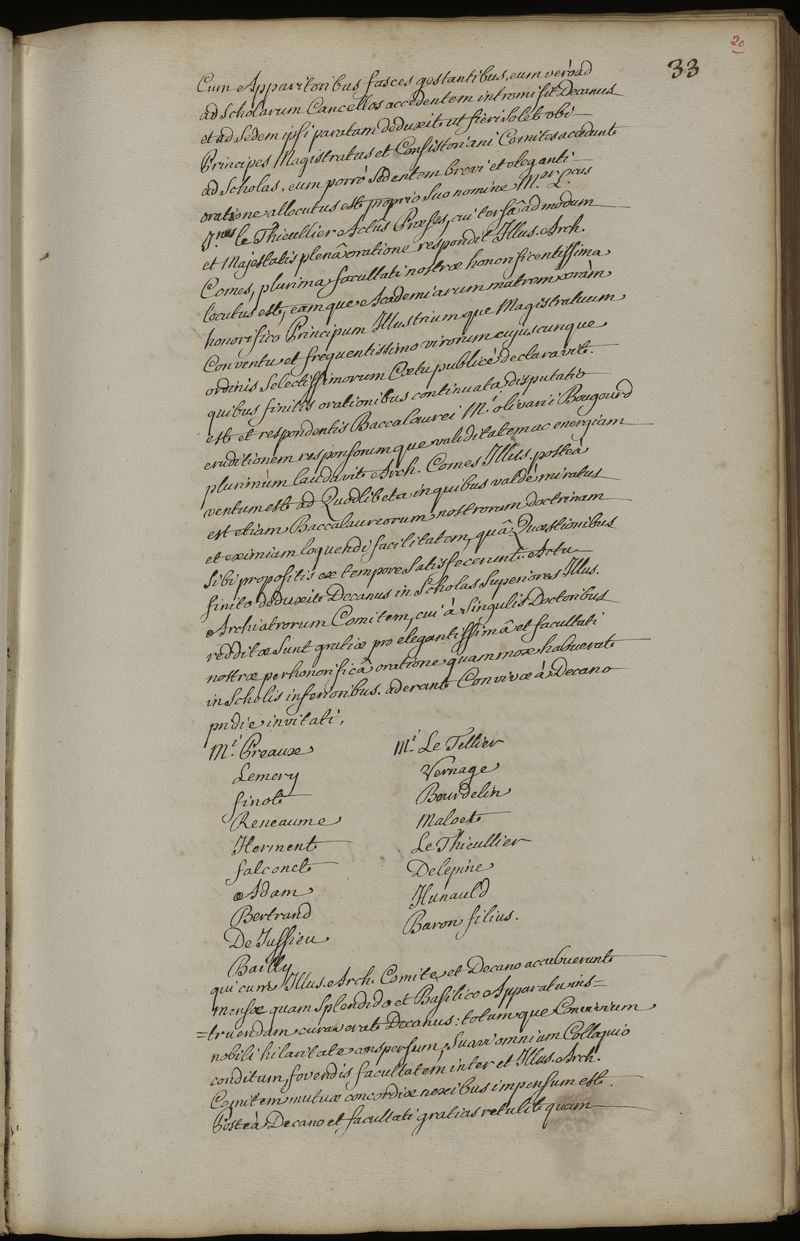 20
33
Cum Apparitoribus fasces gestantibus, eum verò ad
ad Scholarum Cancellos accedentem intromisit Decanus
et ad Sedem ipsi paratam deduxit ut fieri solet ubi
Principes Magistratus et Consistoriani Comites accedunt
ad Scholas. eum porrò Sedentem brevi et eleganti
oratione allocutus est proprio Suo nomine M.er L.cus
J.nes le Thieullier Actûs Præses, cui tersâ admodum
et Majestatis plenâ oratione respondit Illus. Arch.
Comes, plurima facultati nostræ honorificentissima
locutus est, eamque Academiarum matrem coràm
honorifico Principum Illustriumque Magistratuum
Conventu et frequentissimo virorum cujuscunque
ordinis Selectissimorum Cœtu publicè declaravit.
quibus finitis orationibus continuata disputatio
est et respondentis Baccalaurei M.i olivarii Bougourd
eruditionem responsorumque validitatem ac energiam
plurimùm laudavit Arch. Comes Illus. posteà
ventum est ad Quodlibeta in quibus valdè miratus
est etiam Baccalaureorum nostrorum doctrinam
et eximiam loquendi facilitatem, quâ Quæstionibus
Sibi propositis ex tempore Satisfecerunt. Actu
finito deduxit Decanus in Scholas Superiores Illus.
Archiatrorum Comitem, cui à Singulis Doctoribus
redditæ Sunt gratiæ pro elegantissimâ et facultati
nostræ perhonorificâ oratione quam mox habuerat
in Scholis inferioribus. aderant Convivæ à Decano
pridie invitati,
M.i Preaux M.i Le Tellier
Lemery Vernage
finot Bourdelin
Reneaume Maloet
Herment Le Thieullier
falconet Delepine
Adam Hunauld
Bertrand Baron filius.
De Jussieu
Bailly
qui cum Illus. Arch. Comite et Decano accubuerunt
mensæ quam Splendido et Basilico Apparatu ins=
=truendam curaverat Decanus: totumque Convivium
nobili hilaritate conspersum, Suavi omnium Colloquio
conditum, fovendis facultatem inter et Illus. Arch.
Comitem mutuæ concordiæ nexibus impensum est.
Posteà Decano et facultati gratias retulit quam